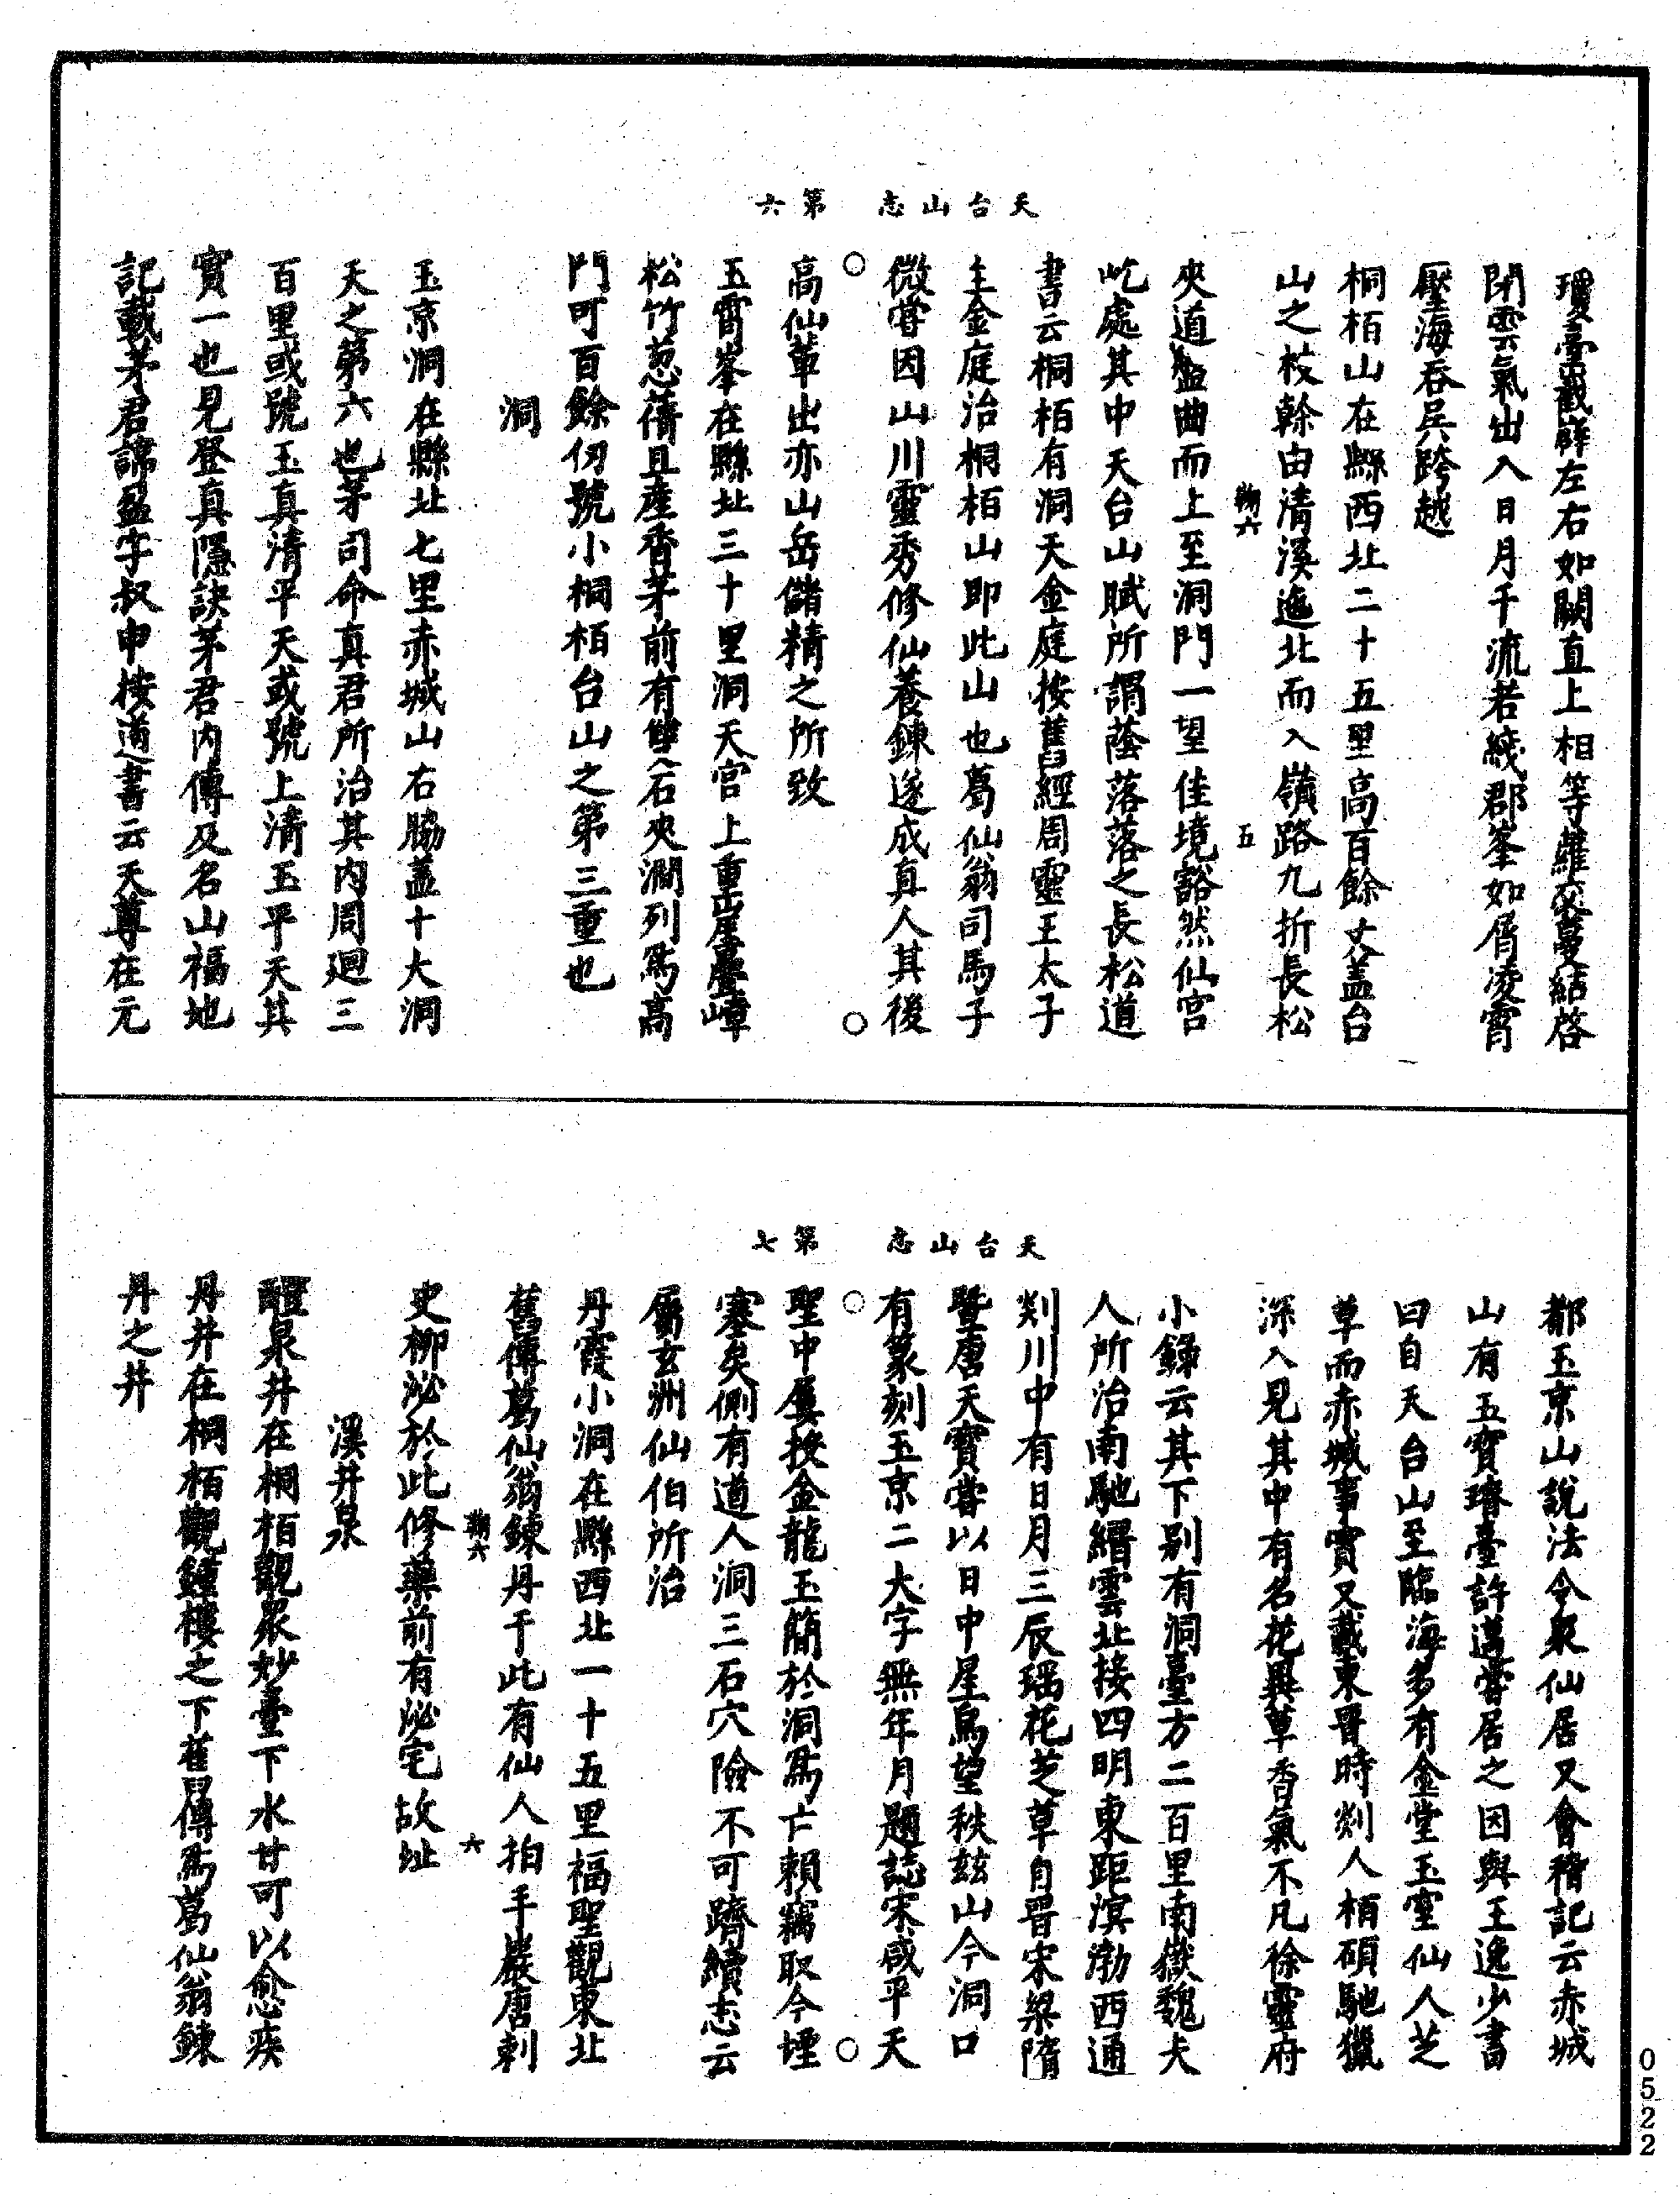 天台山志 第六
瓊臺截嶭左右如闕直上相等蘿蔓結啓
閉雲氣出入日月千流若綫群峯如屑凌霄
壓海吞吳跨越
桐栢山在縣西北二十五里高百餘丈盖台
山之枝幹由清溪迤北而入嶺路九折長松
鞠六 五
夾道盤曲而上至洞門一望佳境豁然仙宫
屹處其中天台山賦所謂蔭落落之長松道
書云桐栢有洞天金庭按舊經周靈王太子
主金庭治桐栢山即此山也葛仙翁司馬子
微嘗因山川靈秀修仙養鍊遂成真人其後
高仙輩出亦山岳儲精之所致
玉霄峯在縣北三十里洞天宫上重崖疊嶂
松竹葱蒨且產香茅前有雙石夾澗列為高
門可百餘仞號小桐栢台山之第三重也
洞
玉京洞在縣北七里赤城山右脇盖十大洞
天之第六也茅司命真君所治其内周廻三
百里或號玉真清平天或號上清玉平天其
實一也見登真隱訣茅君内傳及名山福地
記載茅君諱盈字叔申按道書云天尊在元
天台山志 第七
都玉京山說法令衆仙居又會稽記云赤城
山有玉寶璿臺許邁嘗居之因與王逸少書
曰自天台山至臨海多有金堂玉室仙人芝
草而赤城事實又載東晉時剡人栢碩馳獵
深入見其中有名花異草香氣不凡徐靈府
小錄云其下别有洞臺方二百里南嶽魏夫
人所治南馳縉雲北接四明東距溟渤西通
剡川中有日月三辰瑶花芝草自晉宋梁隋
暨唐天寶嘗以日中星鳥望秩兹山今洞口
有篆刻玉京二大字無年月題誌宋咸平天
聖中屢投金龍玉簡於洞為亡賴竊取今堙
塞矣側有道人洞三石穴險不可躋續志云
屬玄洲仙伯所治
丹霞小洞在縣西北一十五里福聖觀東北
舊傳葛仙翁鍊丹于此有仙人拍手巖唐刺
鞠六 六
史柳泌於此修藥前有泌宅故址
溪井泉
醴泉井在桐栢觀衆妙臺下水甘可以愈疾
丹井在桐栢觀鐘樓之下舊傳為葛仙翁鍊
丹之井
0522